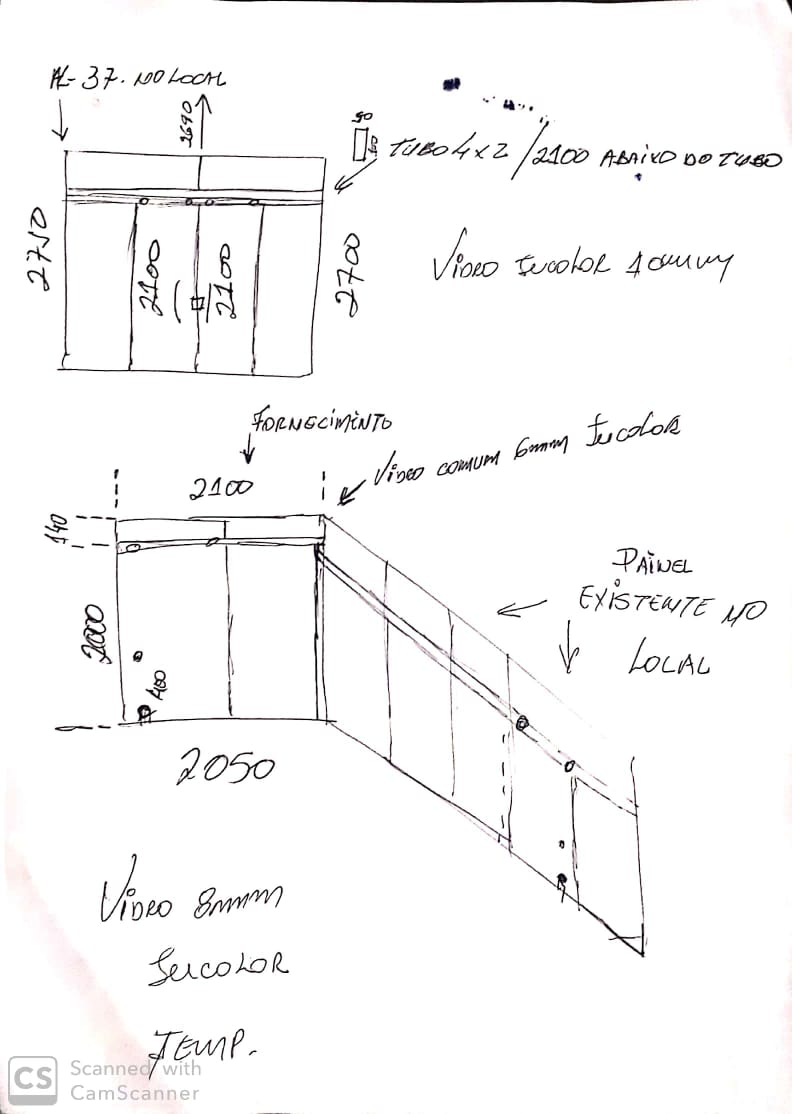 AL-37. NO LOCAL
2690
50
TUBO 4x2 /2100 ABAIXO DO TUBO
2750
2100
2100
2700
VIDRO INCOLOR 10mm
FORNECIMENTO
VIDRO COMUM 6mm INCOLOR
2100
140
PAINEL
EXISTENTE NO
LOCAL
2000
400
2050
VIDRO 8mm
INCOLOR
TEMP.
CS
Scanned with
CamScanner